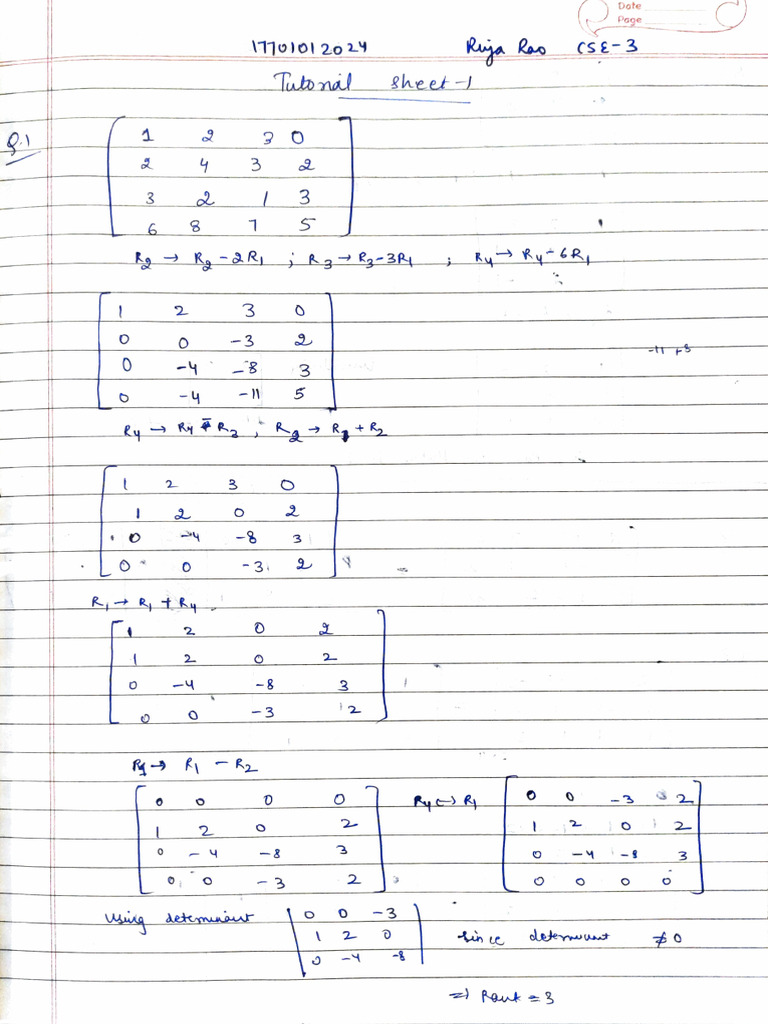 Date
Page
17701012024 Riya Rao CSE-3
Tutorial Sheet-1
Q.1
1 2 3 0
2 4 3 2
3 2 1 3
6 8 7 5
R2 → R2 - 2R1 ; R3 → R3 - 3R1 ; R4 → R4 - 6R1
1 2 3 0
0 0 -3 2
0 -4 -8 3
0 -4 -11 5
-11 +8
R4 → R4 - R3 , R2 → R1 + R2
1 2 3 0
1 2 0 2
0 -4 -8 3
0 0 -3 2
R1 → R1 + R4
1 2 0 2
1 2 0 2
0 -4 -8 3
0 0 -3 2
R1 → R1 - R2
0 0 0 0
1 2 0 2
0 -4 -8 3
0 0 -3 2
R4 ↔ R1
0 0 -3 2
1 2 0 2
0 -4 -8 3
0 0 0 0
Using determinant
0 0 -3
1 2 0
0 -4 -8
since determinant ≠ 0
=> Rank = 3